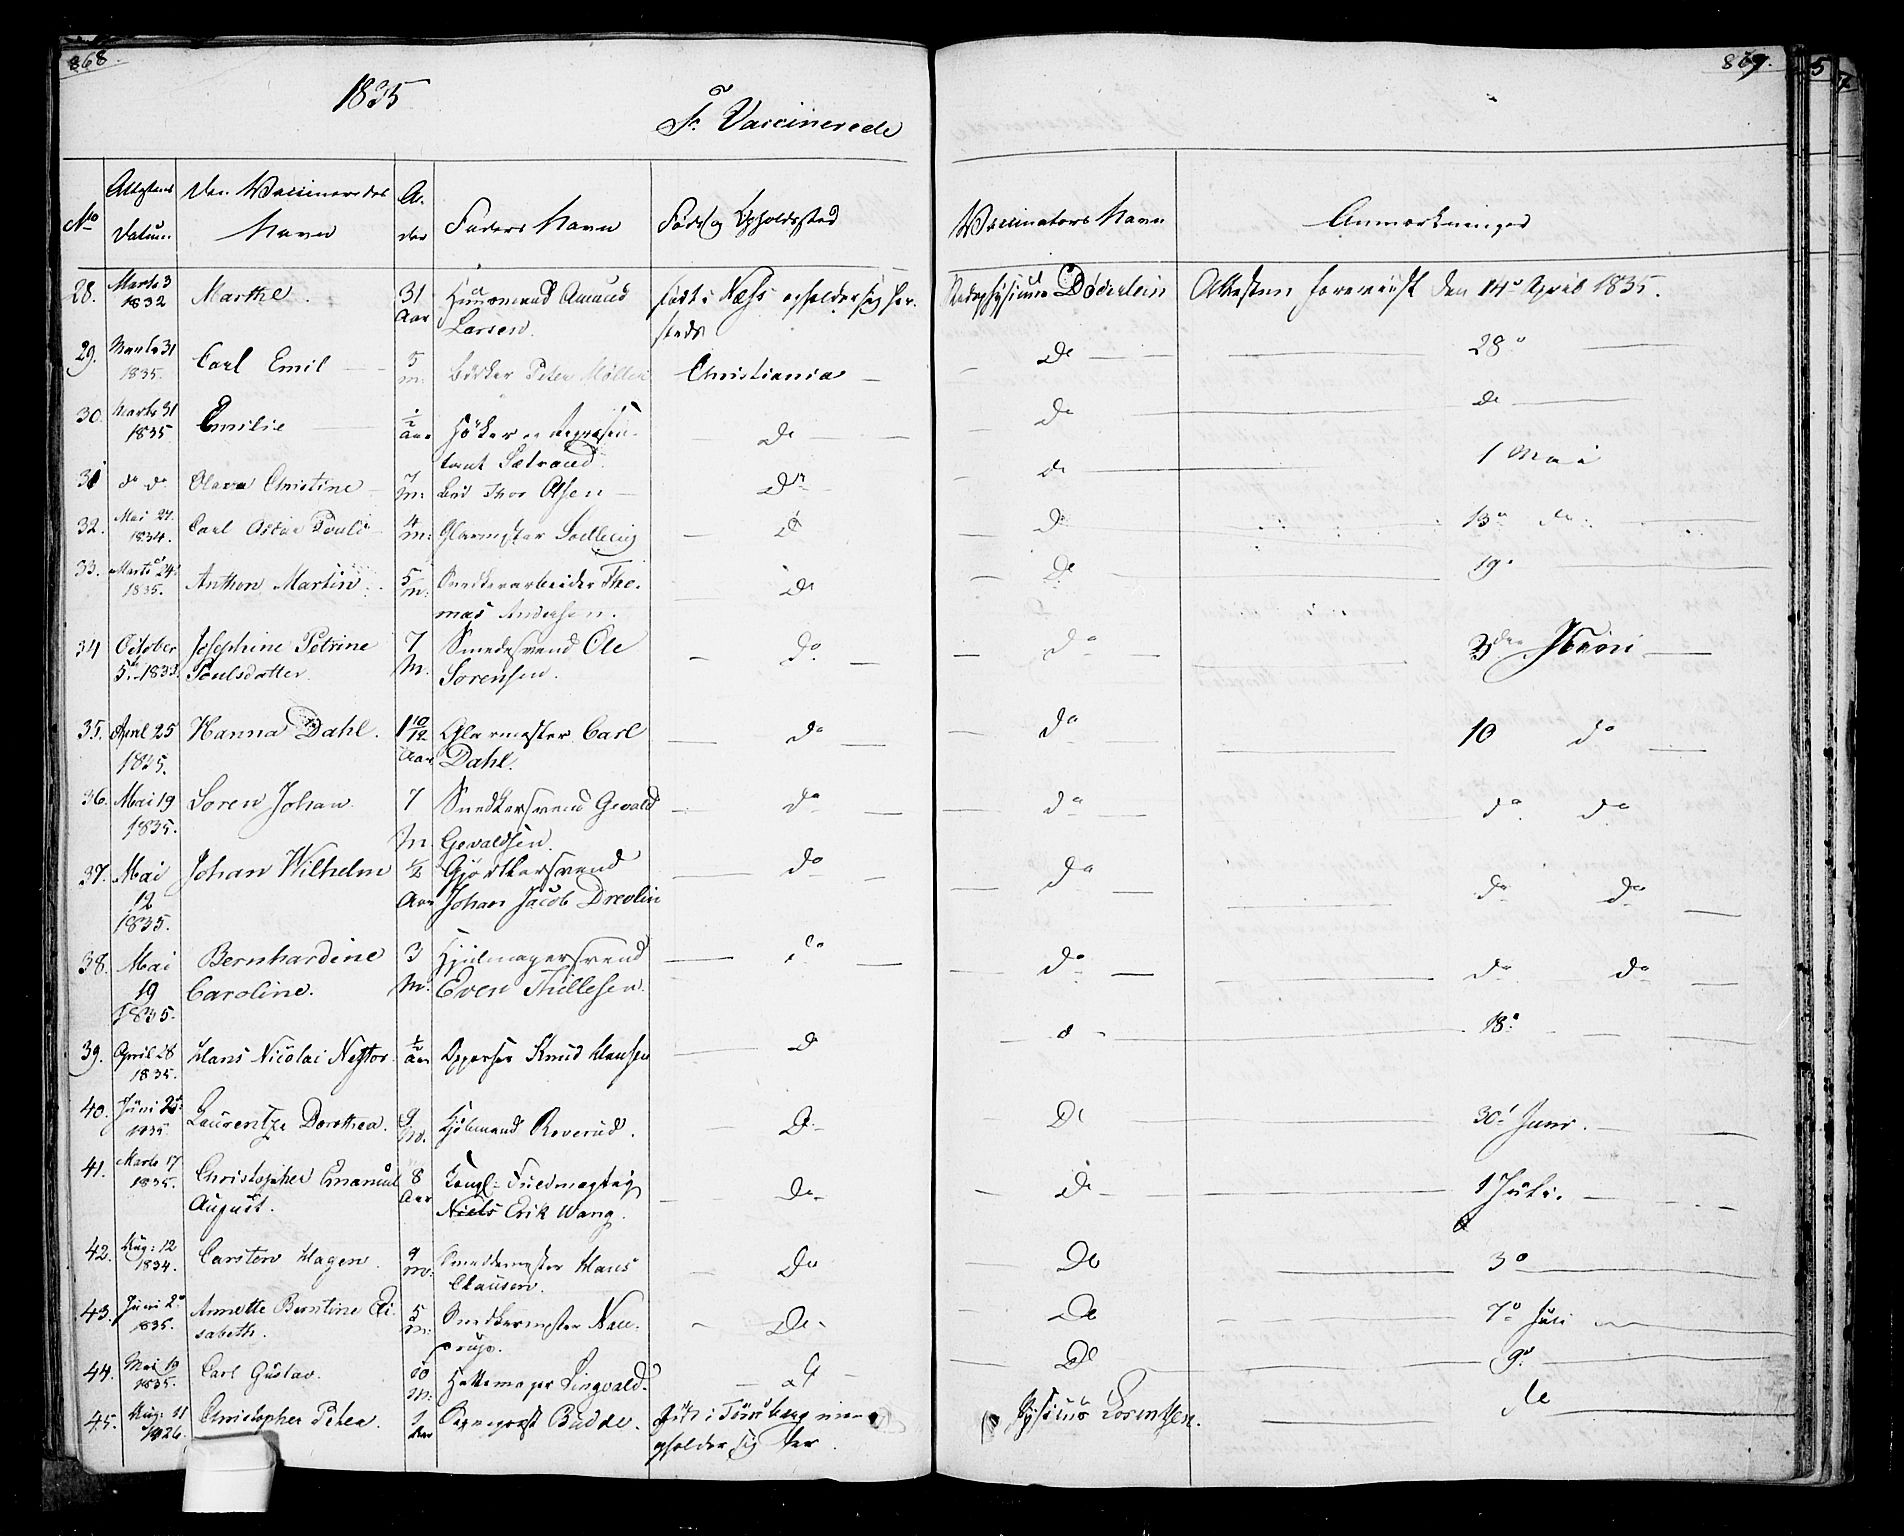 868.
1835
F. Vaccinerede
No
Attestens Datum
Den Vaccineredes Navn
Alder
Faders Navn
Føde og Opholdssted
28. Marts 3 1832 Marthe. 31 Aar Huusmand Amund
Larsen.
født i Næss opholder sig her
steds
29. Marts 31 1835. Carl Emil 5 m: Peter Møller Christiania
30. Marts 31 1835 Emilie ½ Aar Høker og Repræsen-
tant Sætrand. do
31 do do Olava Christine 7 m: Bud Thor Olsen do
32. Mai 27. 1834. Carl Oscar Pouls 4 m: Glarmester do
33. Marts 24 1835. Anthon Martin 5 m: Snedkerarbeider Tho-
mas Andersen. do
34 October 5. 1833. Josephine Petrine
Poulsdatter. 7 M. Smedesvend Ole
Sorensen. do
35. April 25 1835. Hanna Dahl. 1 10/12 Aar Glarmester Carl
Dahl. do
36. Mai 19 1835. Soren Johan 7 m. Snedkersvend Gevald
Gevaldsen. do
37. Mai 12 1835. Johan Wilhelm ½ Aar Gjørtlersvend
Johan Jacob Drevlin do
38. Mai 19 1835. Bernhardine
Caroline. 3 M. Hjulmagersvend
Even Thillesen. do
39. April 28 1835. Hans Nicolai Nestor ½ Aar Opperser Knud Hansen do
40. Juni 25 1835 Laurentze Dorothea. 9 m. Røverud. Do
41. Marts 17 1835. Christopher Emanuel
August. 8 Aar Fuldmægtig
Niels Erik Wang. Do
42. Aug: 12 1834. Carsten Hagen. 9 m: Smedemester Hans
Clausen. Do
43. Juni 2 1835. Annette Berntine Eli
sabeth. 5 m: Snedkermester Nau-
rup. Do
44. Mai 19 1835. Carl Gustav. 10 m: Hattemager Lingvald. do
45. Aug: 11 1826. Christopher Peter. 2 Aar Sognepræst Budde. Født i Tønsberg men
opholder sig her.
869.
Vaccinators Navn
Anmærkninger
Stadsphysicus Døderlein Attesten foreviist den 14 April 1835.
Do 28
do do
do 1 Mai
do 13 do
Do 19
do 3die Juni
do 10 do
do do do
do do do
do do do
d 18
Do 30 Juni.
Do 1 Juli.
Do 3
Do 7 Juli
Do 9
Physicus Lorentzen. do